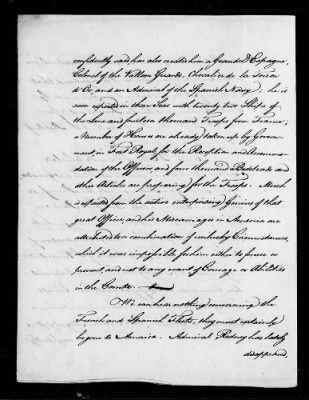 confidently said has also created him a Grandee D'Espagne,
Colonel of the Vallon Guards, Chevalier de la
&c. and an Admiral of the Spanish Navy. he is
soon expected in these Seas with twenty two Ships of
the Line and fourteen thousand Troops from France;
a Number of Houses are already taken up by Govern-
ment, in Fort Royal, for the Reception and Accommo-
dation of the Officers, and four thousand Bedsteads and
other Articles are preparing for the Troops. Much
is expected from the active enterprising Genius of that
great Officer, and his Miscarriages in America are
attributed to a combination of unlucky Circumstances,
which it was impossible for him either to foresee or
prevent, and not to any want of Courage or Abilities
in the Comte.
We can hear nothing concerning the
French and Spanish Fleets, they must certainly
begone to America. Admiral Rodney has lately
disappeared,